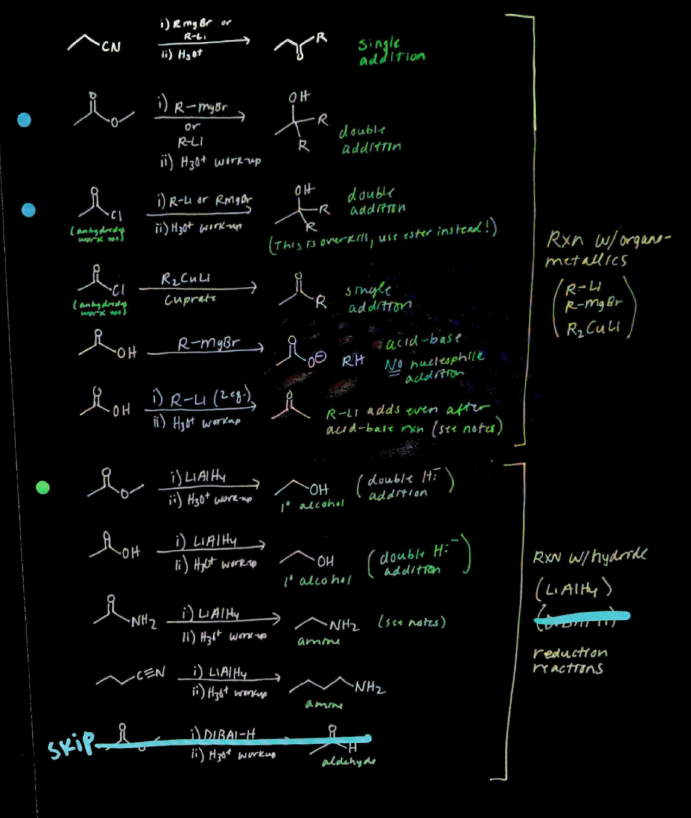 i) RMgBr or
R-Li
ii) H3O+
CN
R
O
single
addition
i) R-MgBr
or
R-Li
ii) H3O+ work-up
O
O
OH
R
R
double
addition
i) R-Li or RMgBr
ii) H3O+ work-up
O
Cl
(anhydride
work too)
OH
R
R
double
addition
(This is overkill, use ester instead!)
R2CuLi
cuprate
O
Cl
(anhydride
work too)
O
R
single
addition
R-MgBr
O
OH
O
O⊖
RH
acid-base
NO nucleophile
addition
i) R-Li (2 eq.)
ii) H3O+ workup
O
OH
O
R-Li adds even after
acid-base rxn (see notes)
Rxn w/organo-
metallics
(R-Li
R-MgBr
R2CuLi)
i) LiAlH4
ii) H3O+ work-up
O
O
OH
1° alcohol
(double H:⁻
addition)
i) LiAlH4
ii) H3O+ work-up
O
OH
OH
1° alcohol
(double H:⁻
addition)
i) LiAlH4
ii) H3O+ work-up
O
NH2
NH2
amine
(see notes)
i) LiAlH4
ii) H3O+ workup
C≡N
NH2
amine
skip
i) DIBAl-H
ii) H3O+ workup
O
H
aldehyde
Rxn w/hydride
(LiAlH4)
reduction
reactions